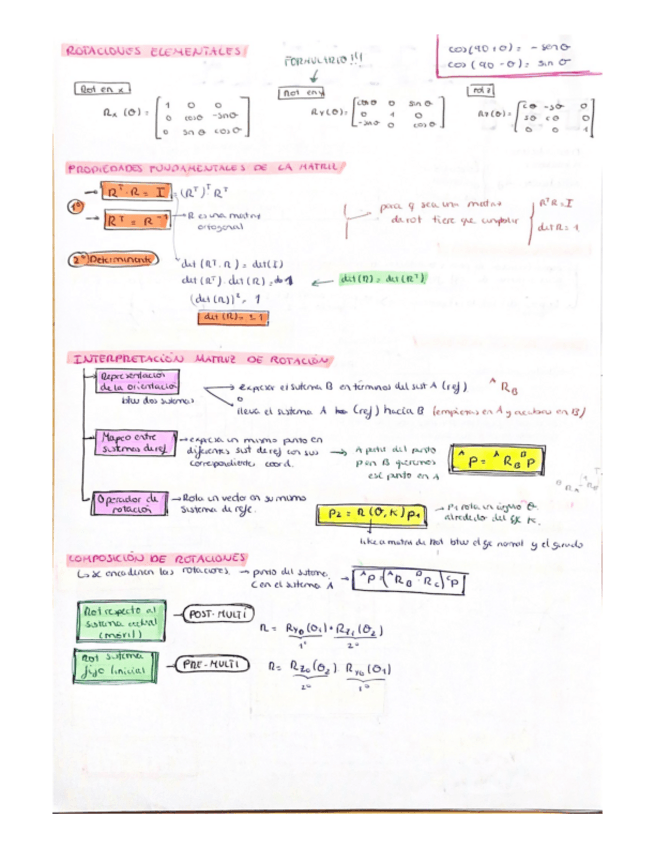 ROTACIONES ELEMENTALES
FORMULARIO !!!
cos(90+θ) = - senθ
cos(90 - θ) = sin θ
Rot en x
Rx (θ) = [ 1 0 0
0 cosθ -senθ
0 senθ cosθ ]
Rot en y
Ry(θ) = [ cosθ 0 sinθ
0 1 0
-senθ 0 cosθ ]
rot z
Rz(θ) = [ cθ -sθ 0
sθ cθ 0
0 0 1 ]
PROPIEDADES FUNDAMENTALES DE LA MATRIZ
1º
R^T · R = I (R^T)^T R^T
R^T = R^-1 → R es una matriz ortogonal
para q sea una matriz de rot tiene que cumplir
R^T R = I
det R = 1
2º) Determinante
det (R^T · R) = det(I)
det (R^T) · det (R) = 1 ← det(R) = det(R^T)
(det (R))² = 1
det (R) = ±1
INTERPRETACIÓN MATRIZ DE ROTACIÓN
Representación de la orientación
btw dos sistemas
→ expresar el sistema B en términos del sist A (ref) ^A R_B
o
lleva el sistema A (ref) hacia B (empiezas en A y acabas en B)
Mapeo entre sistemas de ref.
→ expresa un mismo punto en diferentes sist de ref con sus correspondientes coord.
→ A partir del punto p en B queremos ese punto en A
^A P = ^A R_B ^B P
Operador de rotación
→ Rota un vector en su mismo sistema de refe.
P2 = R (θ, K) P1
→ P1 rota un ángulo θ alrededor del eje K.
like a matriz de Rot btw el eje normal y el girado
COMPOSICIÓN DE ROTACIONES
↳ se encadenan las rotaciones → punto del sistema C en el sistema A → ^A P = (^A R_B ^B R_C) ^C P
Rot respecto al sistema actual (móvil)
POST-MULTI
R = R_Y0 (θ1) · R_Z1 (θ2)
1º 2º
Rot sistema fijo (inicial
PRE-MULTI
R = R_Z0 (θ2) R_Y0 (θ1)
2º 1º